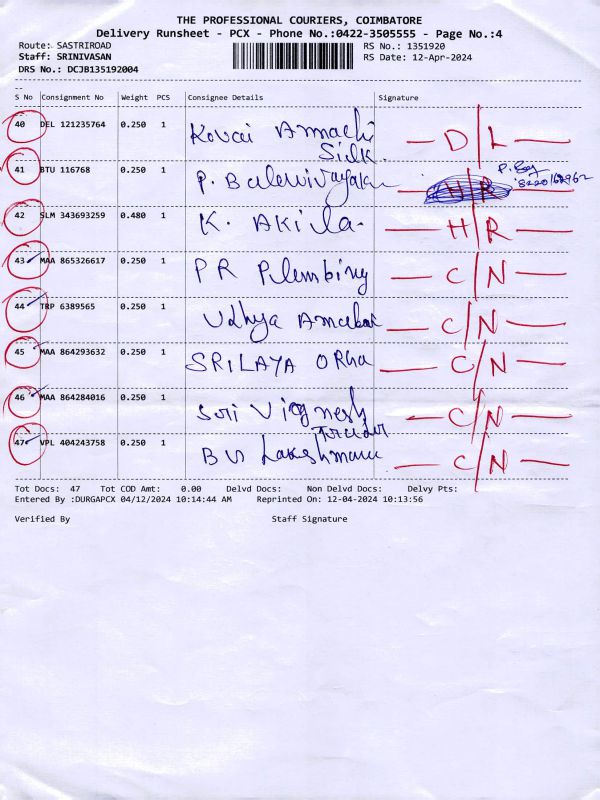 THE PROFESSIONAL COURIERS, COIMBATORE
Delivery Runsheet - PCX - Phone No.:0422-3505555 - Page No.:4
Route: SASTRIROAD RS No.: 1351920
Staff: SRINIVASAN RS Date: 12-Apr-2024
DRS No.: DCJB135192004
S No Consignment No Weight PCS Consignee Details Signature
40 DEL 121235764 0.250 1 Kovai Amachi Silk. D/L
41 BTU 116768 0.250 1 P. H/R P. 
42 SLM 343693259 0.480 1 K. AKila. H/R
43 MAA 865326617 0.250 1 PR Plumbing C/N
44 TRP 6389565 0.250 1 Udhya C/N
45 MAA 864293632 0.250 1 SRILAYA C/N
46 MAA 864284016 0.250 1 Sri Vignesh Trader C/N
47 VPL 404243758 0.250 1 Lakshmanan C/N
Tot Docs: 47 Tot COD Amt: 0.00 Delvd Docs: Non Delvd Docs: Delvy Pts:
Entered By :DURGAPCX 04/12/2024 10:14:44 AM Reprinted On: 12-04-2024 10:13:56
Verified By Staff Signature